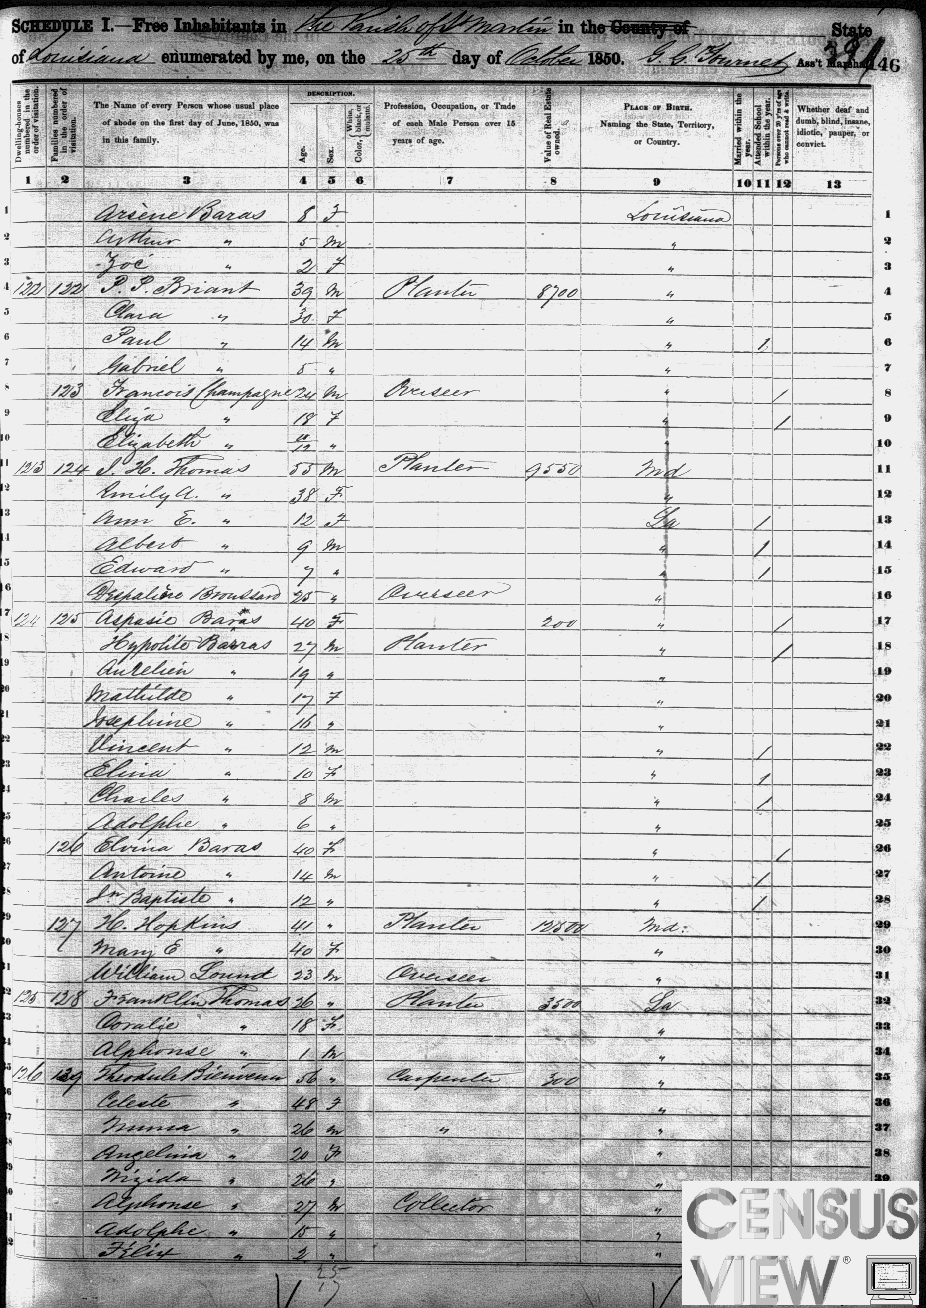 SCHEDULE I.—Free Inhabitants in the Parish of St Martin in the County of State
of Louisiana enumerated by me, on the 25th day of October 1850. G. C. Fournet Ass't Marshal 146
Dwelling-houses numbered in the order of visitation. Families numbered in the order of visitation. The Name of every Person whose usual place of abode on the first day of June, 1850, was in this family. DESCRIPTION. Age. Sex. Color, White, black, or mulatto. Profession, Occupation, or Trade of each Male Person over 15 years of age. Value of Real Estate owned. PLACE OF BIRTH. Naming the State, Territory, or Country. Married within the year. Attended School within the year. Persons over 20 y'rs of age who cannot read & write. Whether deaf and dumb, blind, insane, idiotic, pauper, or convict.
1 2 3 4 5 6 7 8 9 10 11 12 13
1 Arsène Baras 8 F Louisiana 1
2 Arthur " 5 m " 2
3 Zoé " 2 F " 3
4 122 122 P. P. Briant 39 m Planter 8700 " 4
5 Clara " 30 F " 5
6 Paul " 14 m " 1 6
7 Gabriel " 5 " " 7
8 123 Francois Champagne 24 m Overseer " 1 8
9 Eliza " 18 F " 1 9
10 Elizabeth " /12 " " 10
11 123 124 J. H. Thomas 55 m Planter 9550 Md 11
12 Emily A. " 38 F " 12
13 Ann E. " 12 F La 1 13
14 Albert " 9 m " 1 14
15 Edward " 7 " " 1 15
16 Broussard 25 " Overseer " 16
17 124 125 Aspasie Baras 40 F 200 " 1 17
18 Hypolite Barras 27 m Planter " 1 18
19 Aurelien " 19 " " 19
20 Mathilde " 17 F " 20
21 Josephine " 16 " " 21
22 Vincent " 12 m " 1 22
23 Elina " 10 F " 1 23
24 Charles " 8 m " 1 24
25 Adolphe " 6 " " 25
26 126 Elvina Baras 40 F " 1 26
27 Antoine " 14 m " 1 27
28 Jn Baptiste " 12 " " 1 28
29 127 H. Hopkins 41 " Planter 12500 Md. 29
30 Mary E " 40 F " 30
31 William Lound 23 m Overseer " 31
32 125 128 Franklin Thomas 26 " Planter 3500 La 32
33 Coralie " 18 F " 33
34 Alphonse " 1 m " 34
35 126 129 Theodule Bienvenu 56 " Carpenter 300 " 35
36 Celeste " 48 F " 36
37 Numa " 26 m " " 37
38 Angelina " 20 F " 38
39 " 26 " " 39
Alphonse " 27 m Collector "
Adolphe " 15 " "
Félix " 2 " "
25
17
CENSUS
VIEW ®